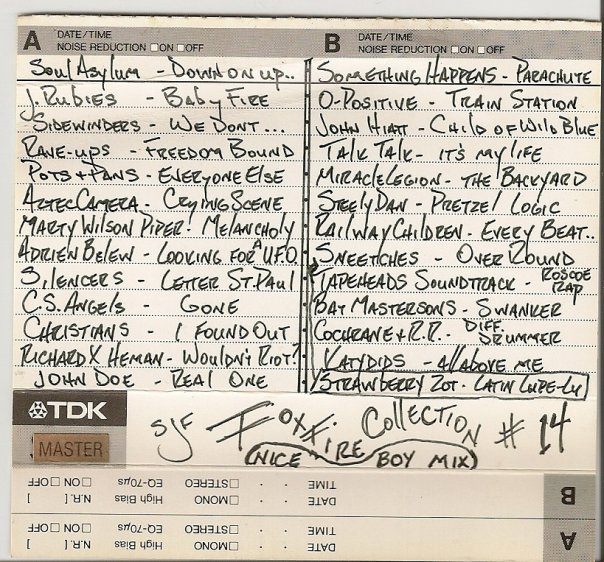 A DATE/TIME
NOISE REDUCTION □ON □OFF
Soul Asylum - Down on up..
J. Rubies - Baby Fire
Sidewinders - We Dont ...
Rave-ups - Freedom Bound
Pots + Pans - Everyone Else
Aztec Camera - Crying Scene
Marty Wilson Piper - Melancholy
Adrien Belew - Looking for A U.F.O.
Silencers - Letter St. Paul
C.S. Angels - Gone
Christians - I Found Out
Richard X Heman - Wouldn't Riot?
John Doe - Real One
B DATE/TIME
NOISE REDUCTION □ON □OFF
Something Happens - Parachute
O-Positive - Train Station
John Hiatt - Child of Wild Blue
Talk Talk - it's my life
Miracle Legion - the Backyard
Steely Dan - Pretzel Logic
Railway Children - Every Beat..
Sneetches - Over Round
Tapeheads Soundtrack - Roscoe Rap
Bat Mastersons - Swanker
Cochrane + R.R. - Diff. Drummer
Katydids - All Above me
Strawberry Zot - Latin Lupe-Lu
TDK
MASTER
SJF Foxfire Collection # 14
(Nice Boy Mix)
B
DATE · · □MONO High Bias N.R. [ ]
TIME · · □STEREO EQ-70μs □ON □OFF
A
DATE · · □MONO High Bias N.R. [ ]
TIME · · □STEREO EQ-70μs □ON □OFF